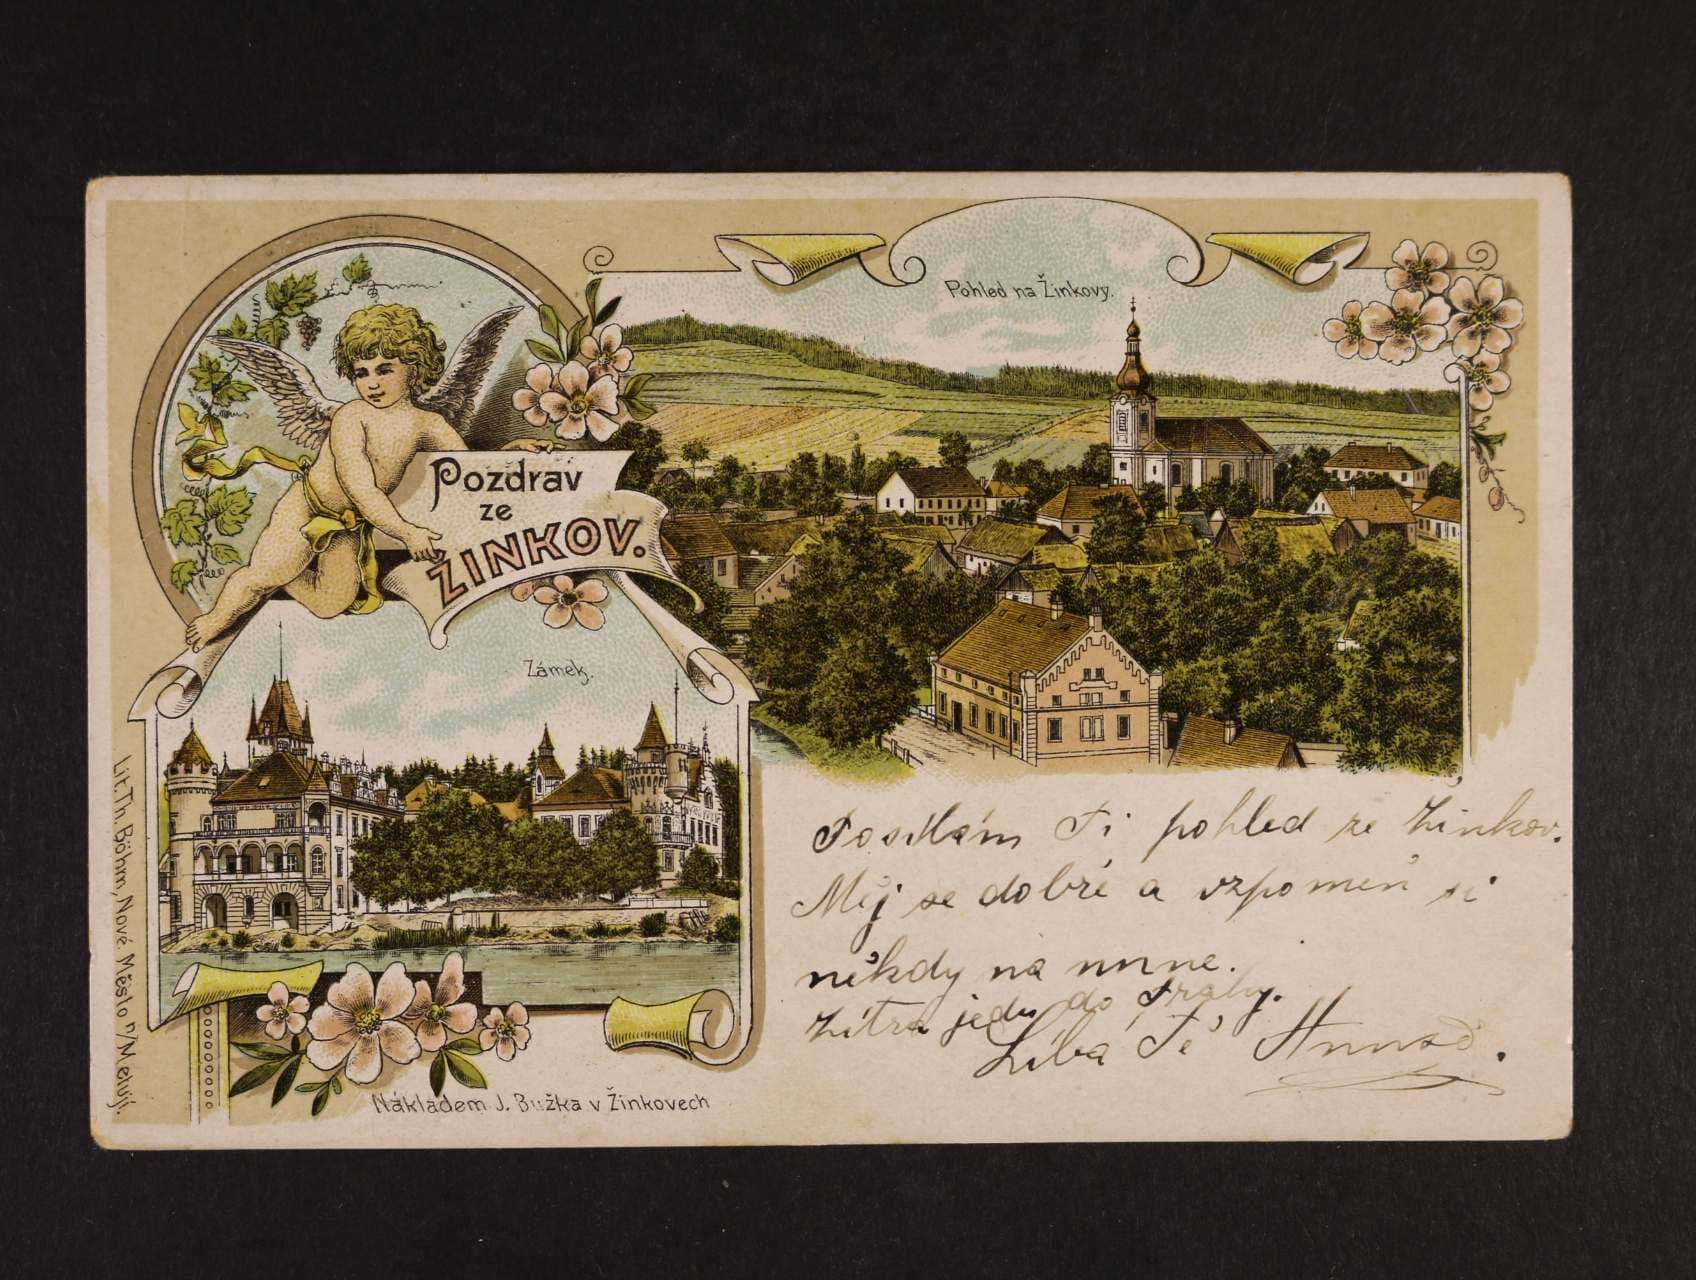 Pozdrav
ze
ŽINKOV.
Pohled na Žinkovy.
Zámek.
Posílám Ti pohled ze Žinkov.
Měj se dobře a vzpomeň si
někdy na mne.
Zítra jedu do Prahy.
Líbá Tě
Nákladem J. Bužka v Žinkovech
Lit. Th. Böhm, Nové Město n/Metují.